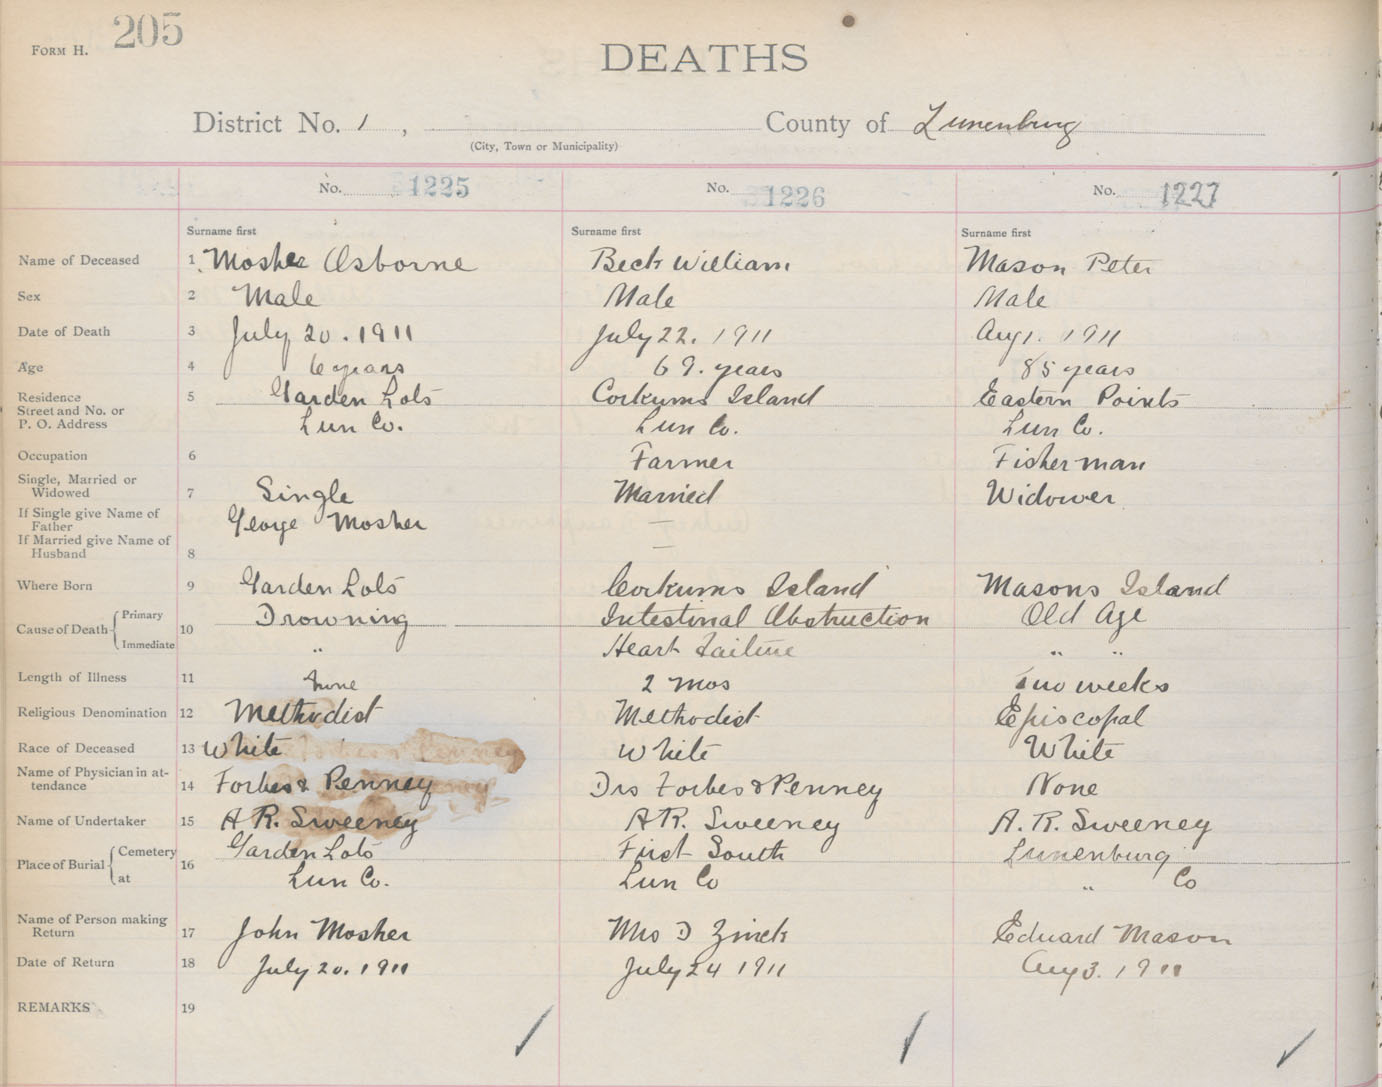 FORM H. 205
DEATHS
District No. 1, County of Lunenburg
(City, Town or Municipality)
No. 1225 No. 1226 No. 1227
Surname first Surname first Surname first
Name of Deceased 1 Mosher Osborne Beck William Mason Peter
Sex 2 Male Male Male
Date of Death 3 July 20. 1911 July 22. 1911 Aug 1. 1911
Age 4 6 years 69. years 85 years
Residence 5 Garden Lots Corkums Island Eastern Points
Street and No. or
P. O. Address Lun Co. Lun Co. Lun Co.
Occupation 6 Farmer Fisherman
Single, Married or
Widowed 7 Single Married Widower
If Single give Name of
Father George Mosher —
If Married give Name of
Husband 8 —
Where Born 9 Garden Lots Corkums Island Masons Island
Cause of Death { Primary 10 Drowning Intestinal Obstruction Old Age
Immediate " Heart Failure " "
Length of Illness 11 None 2 mos Two weeks
Religious Denomination 12 Methodist Methodist Episcopal
Race of Deceased 13 White White White
Name of Physician in at-
tendance 14 Forbes & Penney Drs Forbes & Penney None
Name of Undertaker 15 A R. Sweeney A R. Sweeney A. R. Sweeney
Place of Burial { Cemetery 16 Garden Lots First South Lunenburg
at Lun Co. Lun Co " Co
Name of Person making
Return 17 John Mosher Mrs D Zinck Edward Mason
Date of Return 18 July 20. 1911 July 24 1911 Aug 3. 1911
REMARKS 19